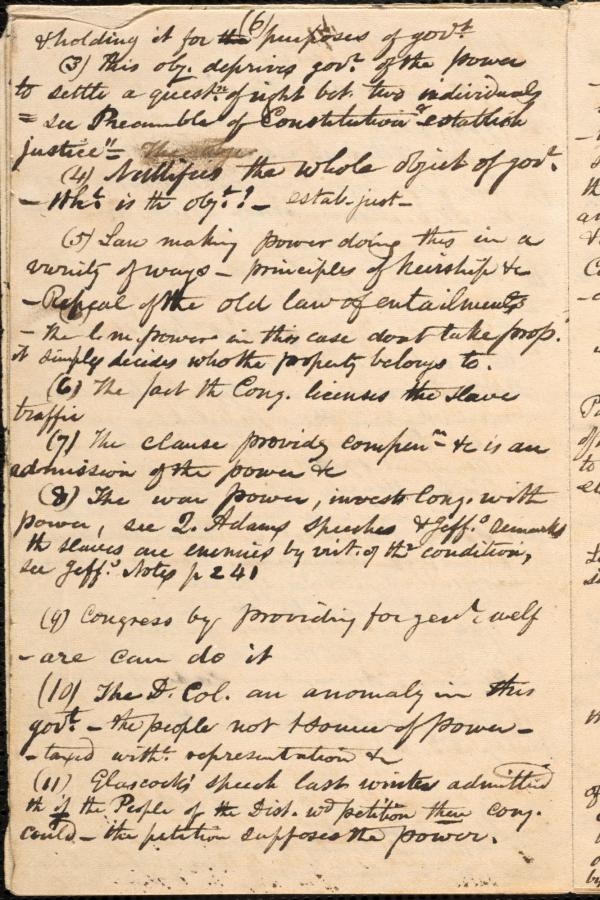 (6)
& holding it for the purposes of govt
(3) This obj. deprives govt. of the power
to settle a questn. of right bet. two individuals
= see Preamble of Constitution "establish
justice" =
(4) Nullifies the whole object of govt.
– Wht. is th objt.? – estab. just –
(5) Law making power doing this in a
variety of ways – principles of heirship &c
– Repeal of the old law of entailments
– the l. m. power in this case dont take prop.
it simply decides who the property belongs to.
(6) The fact th Cong. licenses the slave
traffic
(7) The clause providg compenn &c is an
admission of the power &c
(8) The war power, invests Cong. with
power, see Q. Adams speeches & Jeff.s remarks
th slaves are enemies by virt. of thr condition,
see Jeff.s Notes p 241
(9) Congress by providing for genl. welf
– are can do it
(10) The D. Col. an anomaly in this
govt. – the people not source of power –
– taxed witht. representation &c
(11) Glascock's speech last winter admitted
th if the People of the Dist. wd petition then cong.
could – the petition supposes the power.